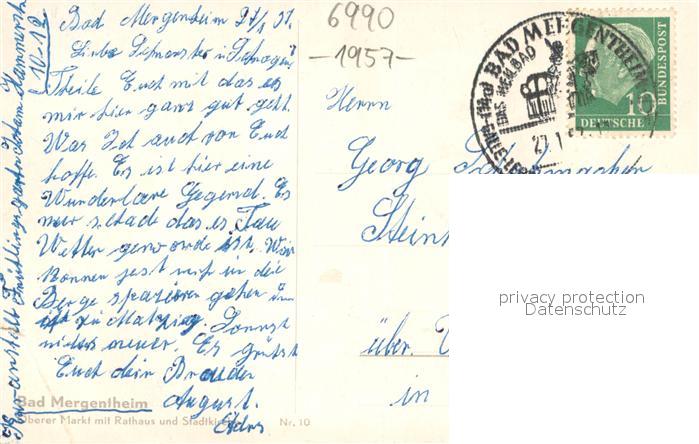 Bad Mergentheim 27/1 57.
Liebe Schwester u Schwager
Theile Euch mit das es
mir hier ganz gut geht.
Was Ich auch von Euch
hoffe. Es ist hier eine
Wunderbare Gegend. Es
nur schade das es Tau
Wetter geworde ist. Wir
konnen jest nicht in die
Berge spaziren gehen
ist zu Matzig. Sonnst
nichts neues. Es grüsst
Euch dein Bruder
August.
Adrs
Kammerst
10-12
6990
-1957-
BAD MERGENTHEIM
DAS HEILBAD
27.1.
10
DEUTSCHE
BUNDESPOST
Herrn
Georg Schuhmacher
Stein
über
in
privacy protection
Datenschutz
Bad Mergentheim
Oberer Markt mit Rathaus und Stadtkirche
Nr. 10